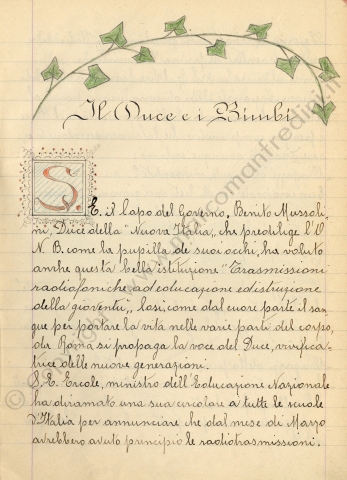 Il Duce e i Bimbi
S. E. il Capo del Governo, Benito Mussoli-
ni, Duce della "Nuova Italia", che predilige l'O
N. B. come la pupilla de' suoi occhi, ha voluto
anche questa bella istituzione "Trasmissioni
radiofoniche ad educazione ed istruzione
della gioventù". Così, come dal cuore parte il san-
gue per portare la vita nelle varie parti del corpo,
da Roma si propaga la voce del Duce, vivifica-
trice delle nuove generazioni.
S. E. Ercole, ministro dell'Educazione Nazionale
ha diramato una sua circolare a tutte le scuole
d'Italia per annunciare che dal mese di Marzo
avrebbero avuto principio le radiotrasmissioni.